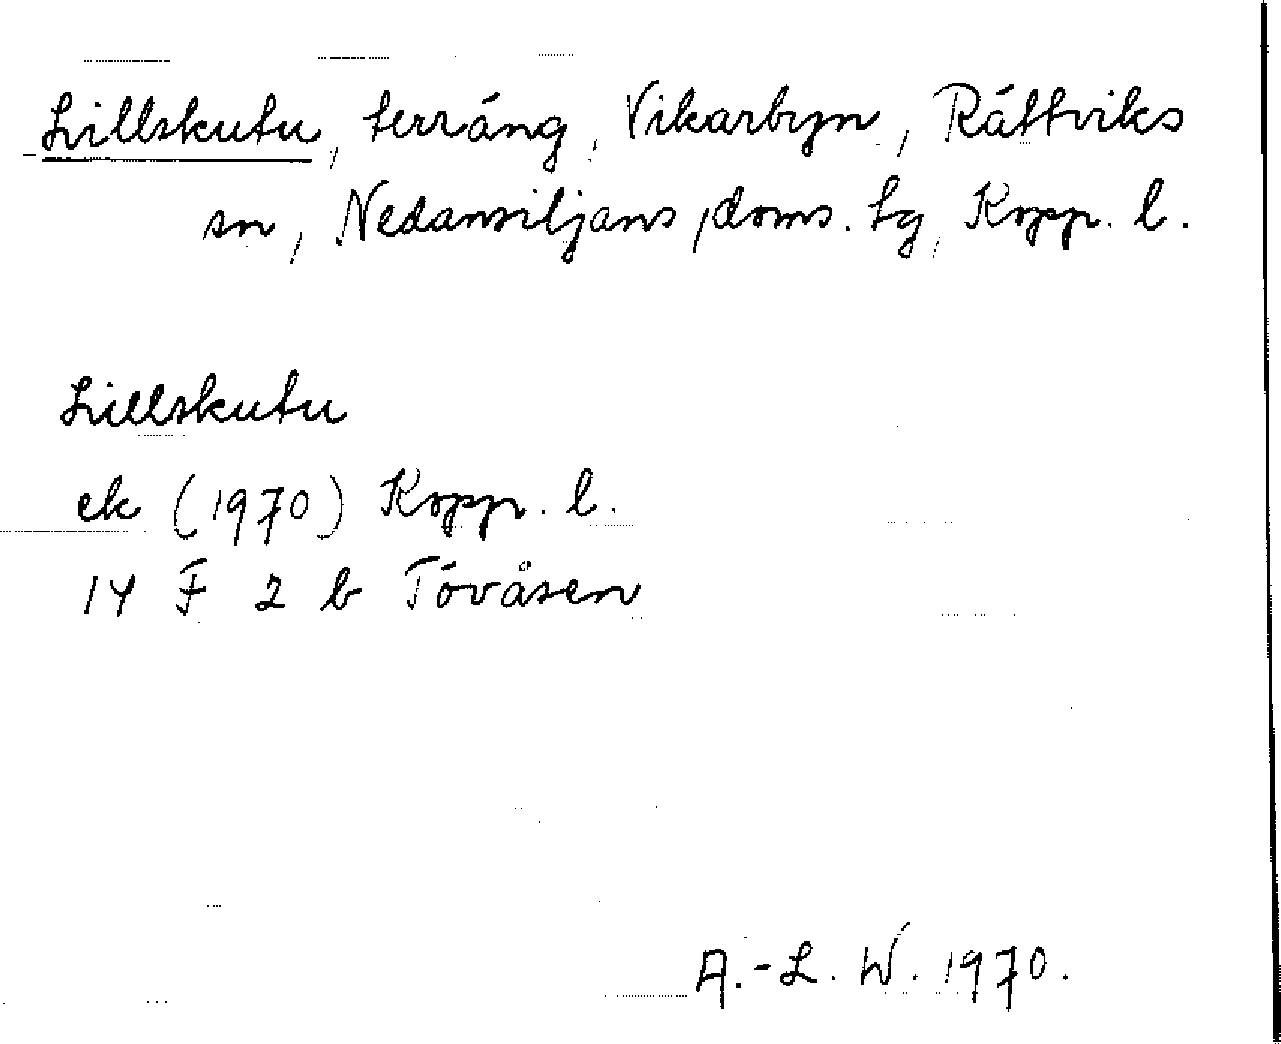 Lillskutu, terräng, Vikarbyn, Rättviks
sn, Nedansiljans doms. tg, Kopp. l.
Lillskutu
ek (1970) Kopp. l.
14 F 2 b Tövåsen
A.-L. W. 1970.